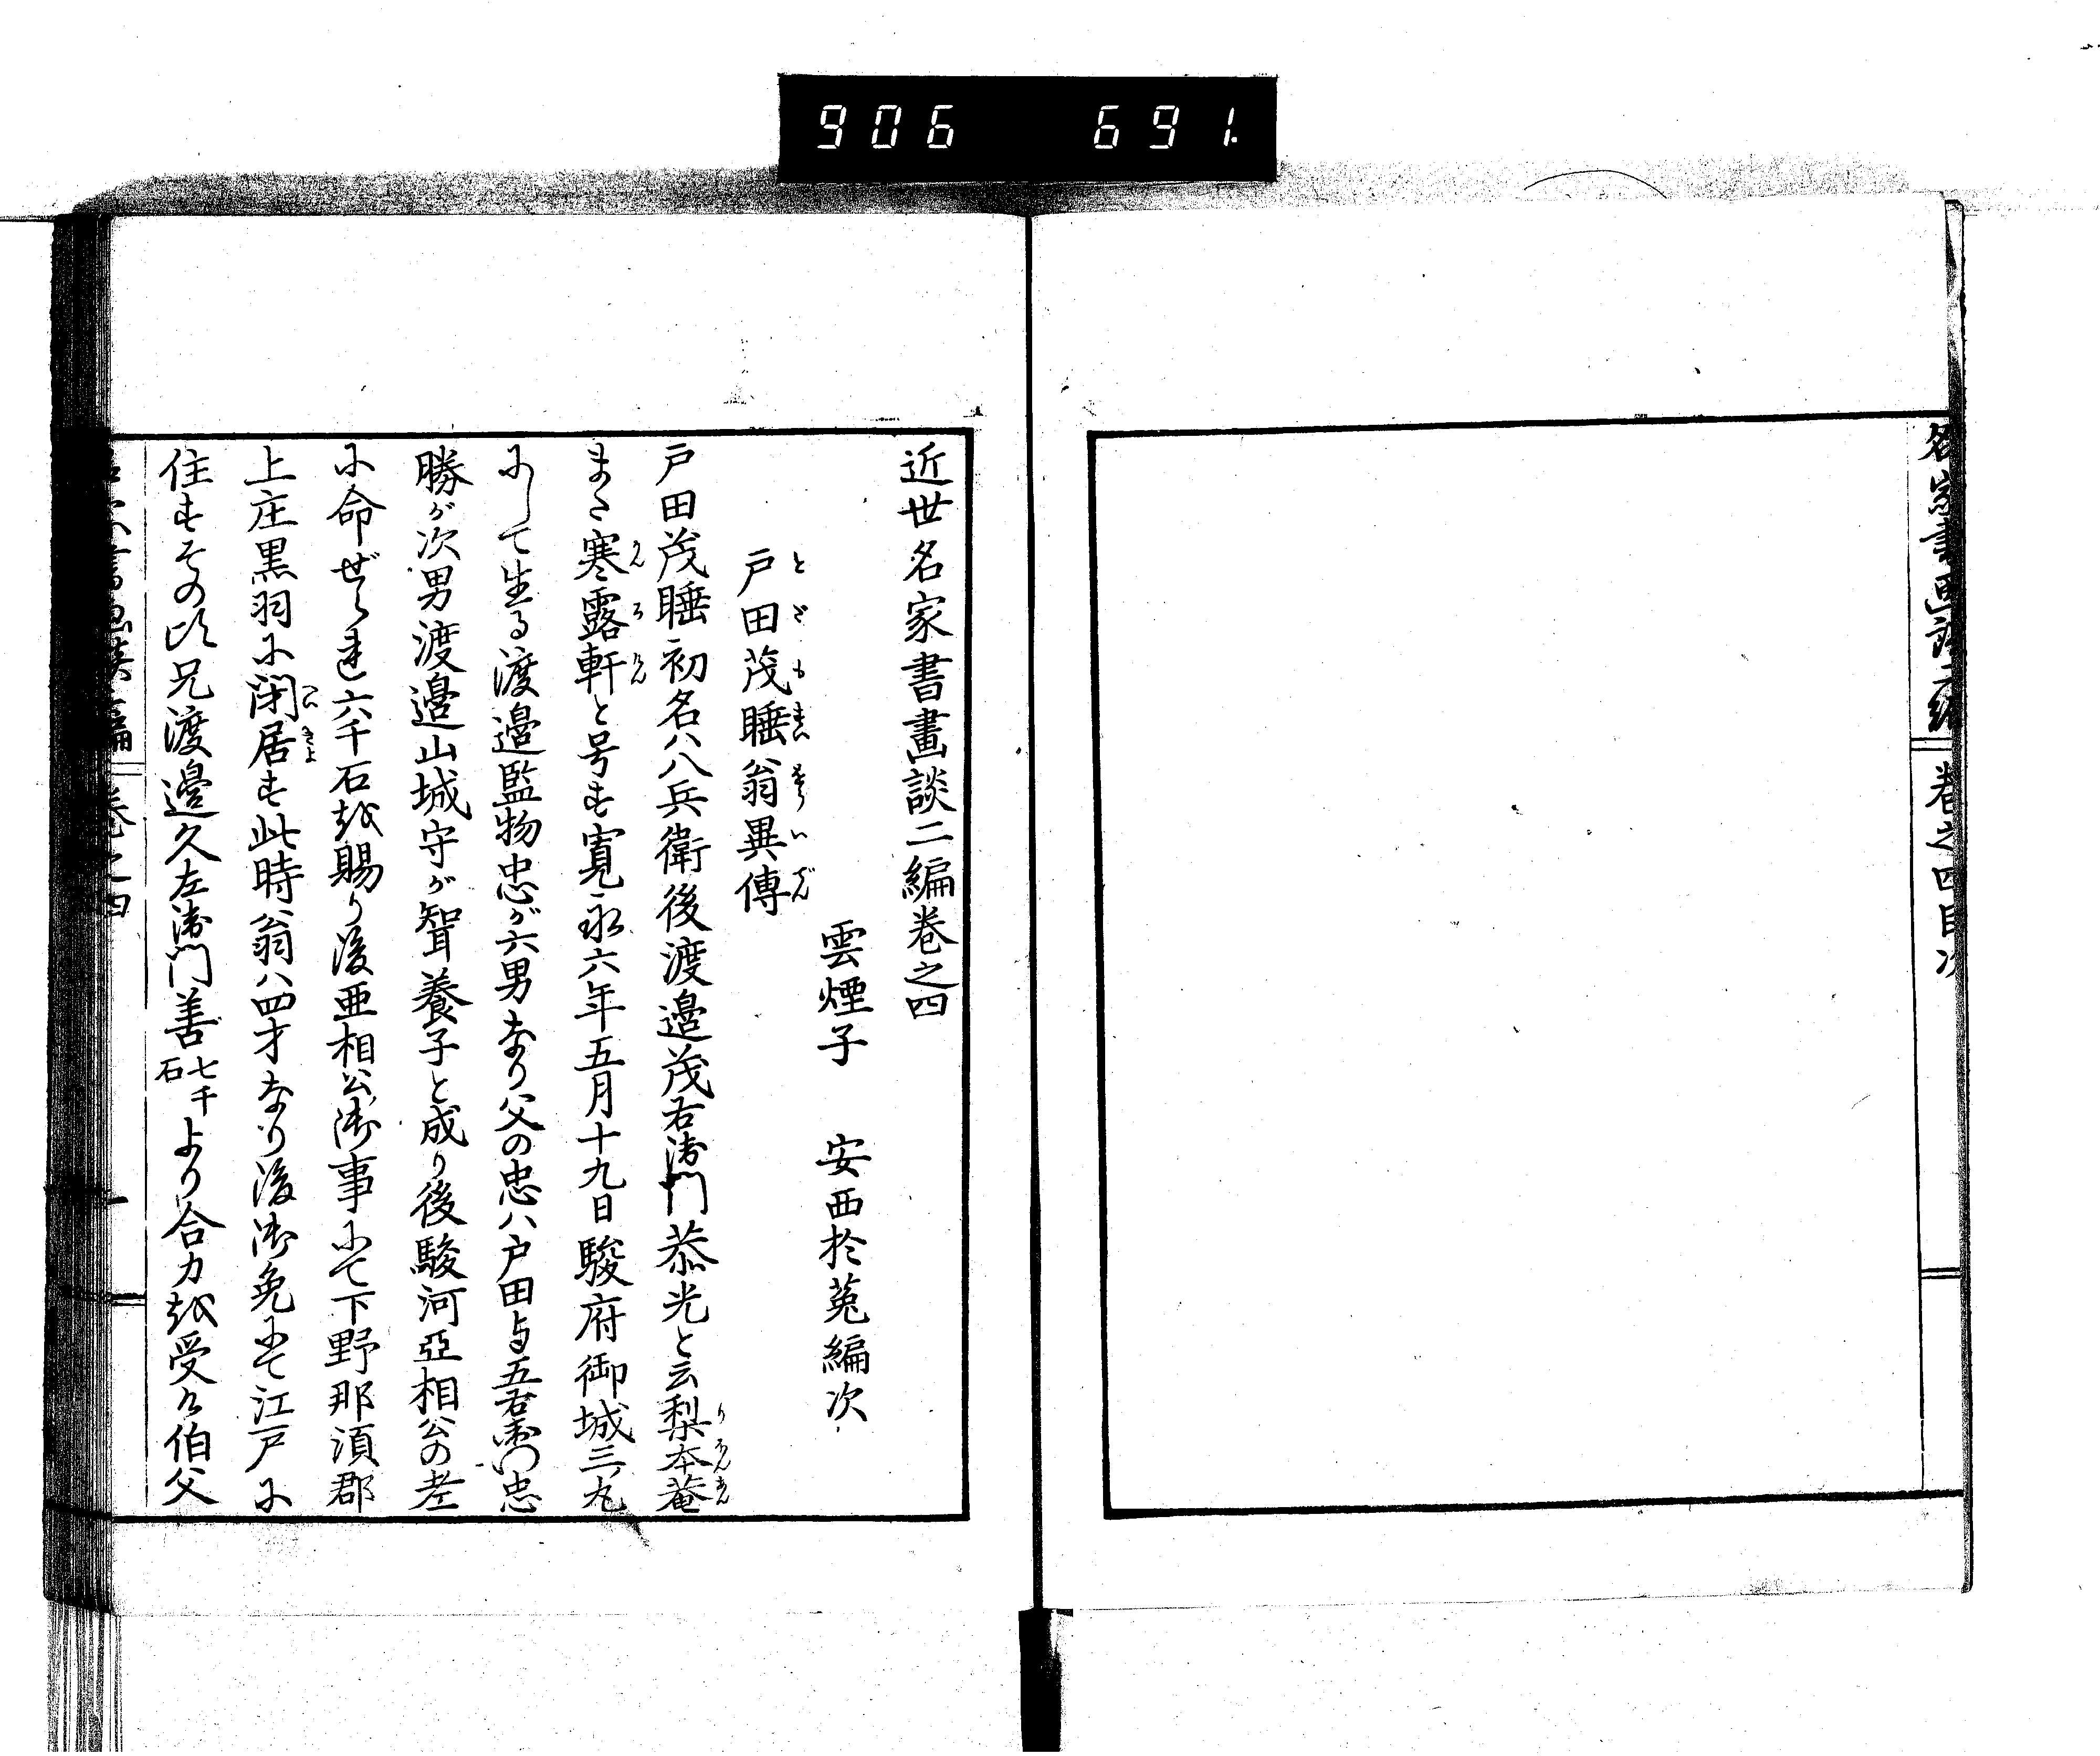 906 691.
名家書画談二編 巻之四目次
近世名家書畫談二編巻之四
雲煙子 安西於菟編次
戸田茂睡翁異傳
とだもすいおういでん
戸田茂睡初名ハ八兵衛後渡邉茂右衛門恭光と云梨本菴
また寒露軒と号す寛永六年五月十九日駿府御城三丸
にして生る渡邉監物忠が六男なり父の忠ハ戸田与五右衛門忠
勝が次男渡邉山城守が聟養子と成り後駿河亞相公の老
に命ぜられ六千石を賜り後亜相公御事にて下野那須郡
上庄黒羽に閉居す此時翁ハ四才なり後御免にて江戸に
住すその比兄渡邉久左衛門善七千石より合力を受く伯父
巻之四